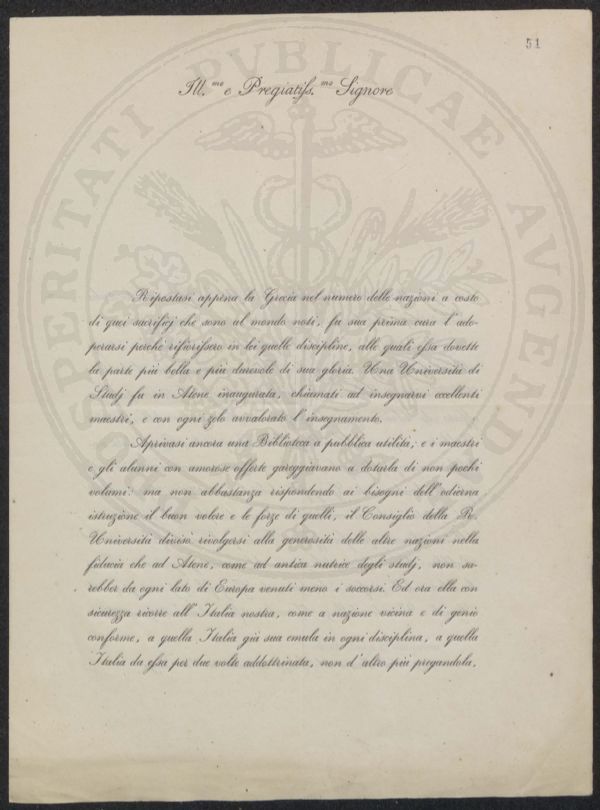 51
Ill.mo e Pregiatiss.mo Signore
PROSPERITATI PVBLICAE AVGENDAE
Ripostasi appena la Grecia nel numero delle nazioni a costo
di quei sacrificj che sono al mondo noti, fu sua prima cura l'ado-
perarsi perchè rifiorissero in lei quelle discipline, alle quali essa dovette
la parte più bella e più durevole di sua gloria. Una Università di
Studj fu in Atene inaugurata, chiamati ad insegnarvi eccellenti
maestri, e con ogni zelo avvalorato l'insegnamento.
Aprivasi ancora una Biblioteca a pubblica utilità; e i maestri
e gli alunni con amorose offerte gareggiavano a dotarla di non pochi
volumi: ma non abbastanza rispondendo ai bisogni dell'odierna
istruzione il buon volere e le forze di quelli, il Consiglio della Re.
Università divisò rivolgersi alla generosità delle altre nazioni nella
fiducia che ad Atene, come ad antica nutrice degli studj, non sa-
rebber da ogni lato di Europa venuti meno i soccorsi. Ed ora ella con
sicurezza ricorre all'Italia nostra, come a nazione vicina e di genio
conforme, a quella Italia già sua emula in ogni disciplina, a quella
Italia da essa per due volte addottrinata, non d'altro più pregandola,